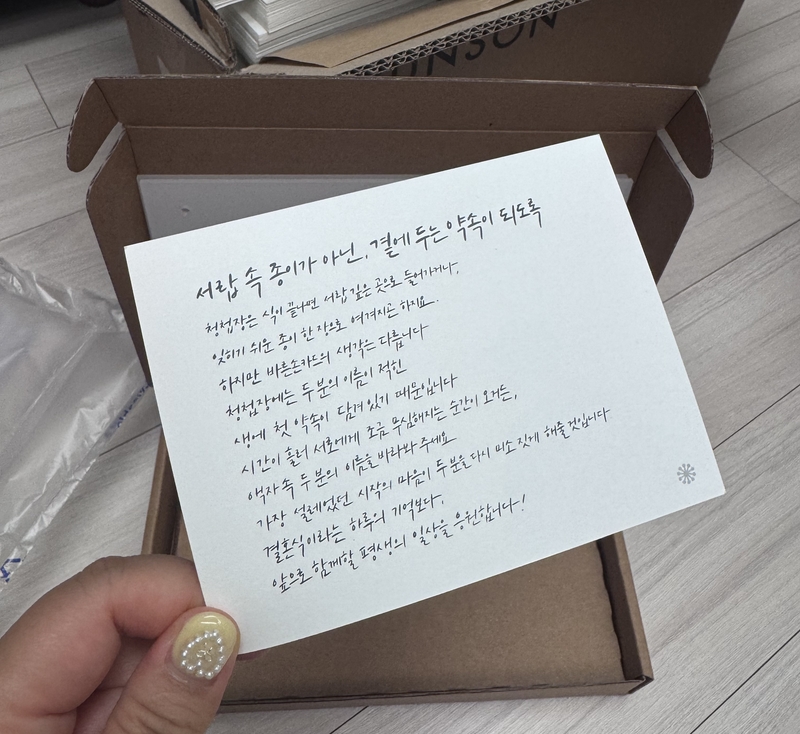 UNSON
서랍 속 종이가 아닌, 곁에 두는 약속이 되도록
청첩장은 식이 끝나면 서랍 깊은 곳으로 들어가거나,
잊히기 쉬운 종이 한 장으로 여겨지곤 하지요.
하지만 바른손카드의 생각은 다릅니다
청첩장에는 두 분의 이름이 적힌
생에 첫 약속이 담겨있기 때문입니다
시간이 흘러 서로에게 조금 무심해지는 순간이 오거든,
액자 속 두 분의 이름을 바라봐 주세요
가장 설레었던 시작의 마음이 두 분을 다시 미소 짓게 해줄 것입니다
결혼식이라는 하루의 기억보다,
앞으로 함께할 평생의 일상을 응원합니다!